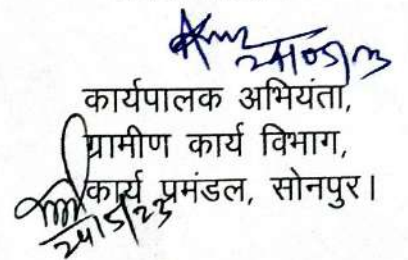 24/05/23
कार्यपालक अभियंता,
ग्रामीण कार्य विभाग,
कार्य प्रमंडल, सोनपुर।
24/5/23